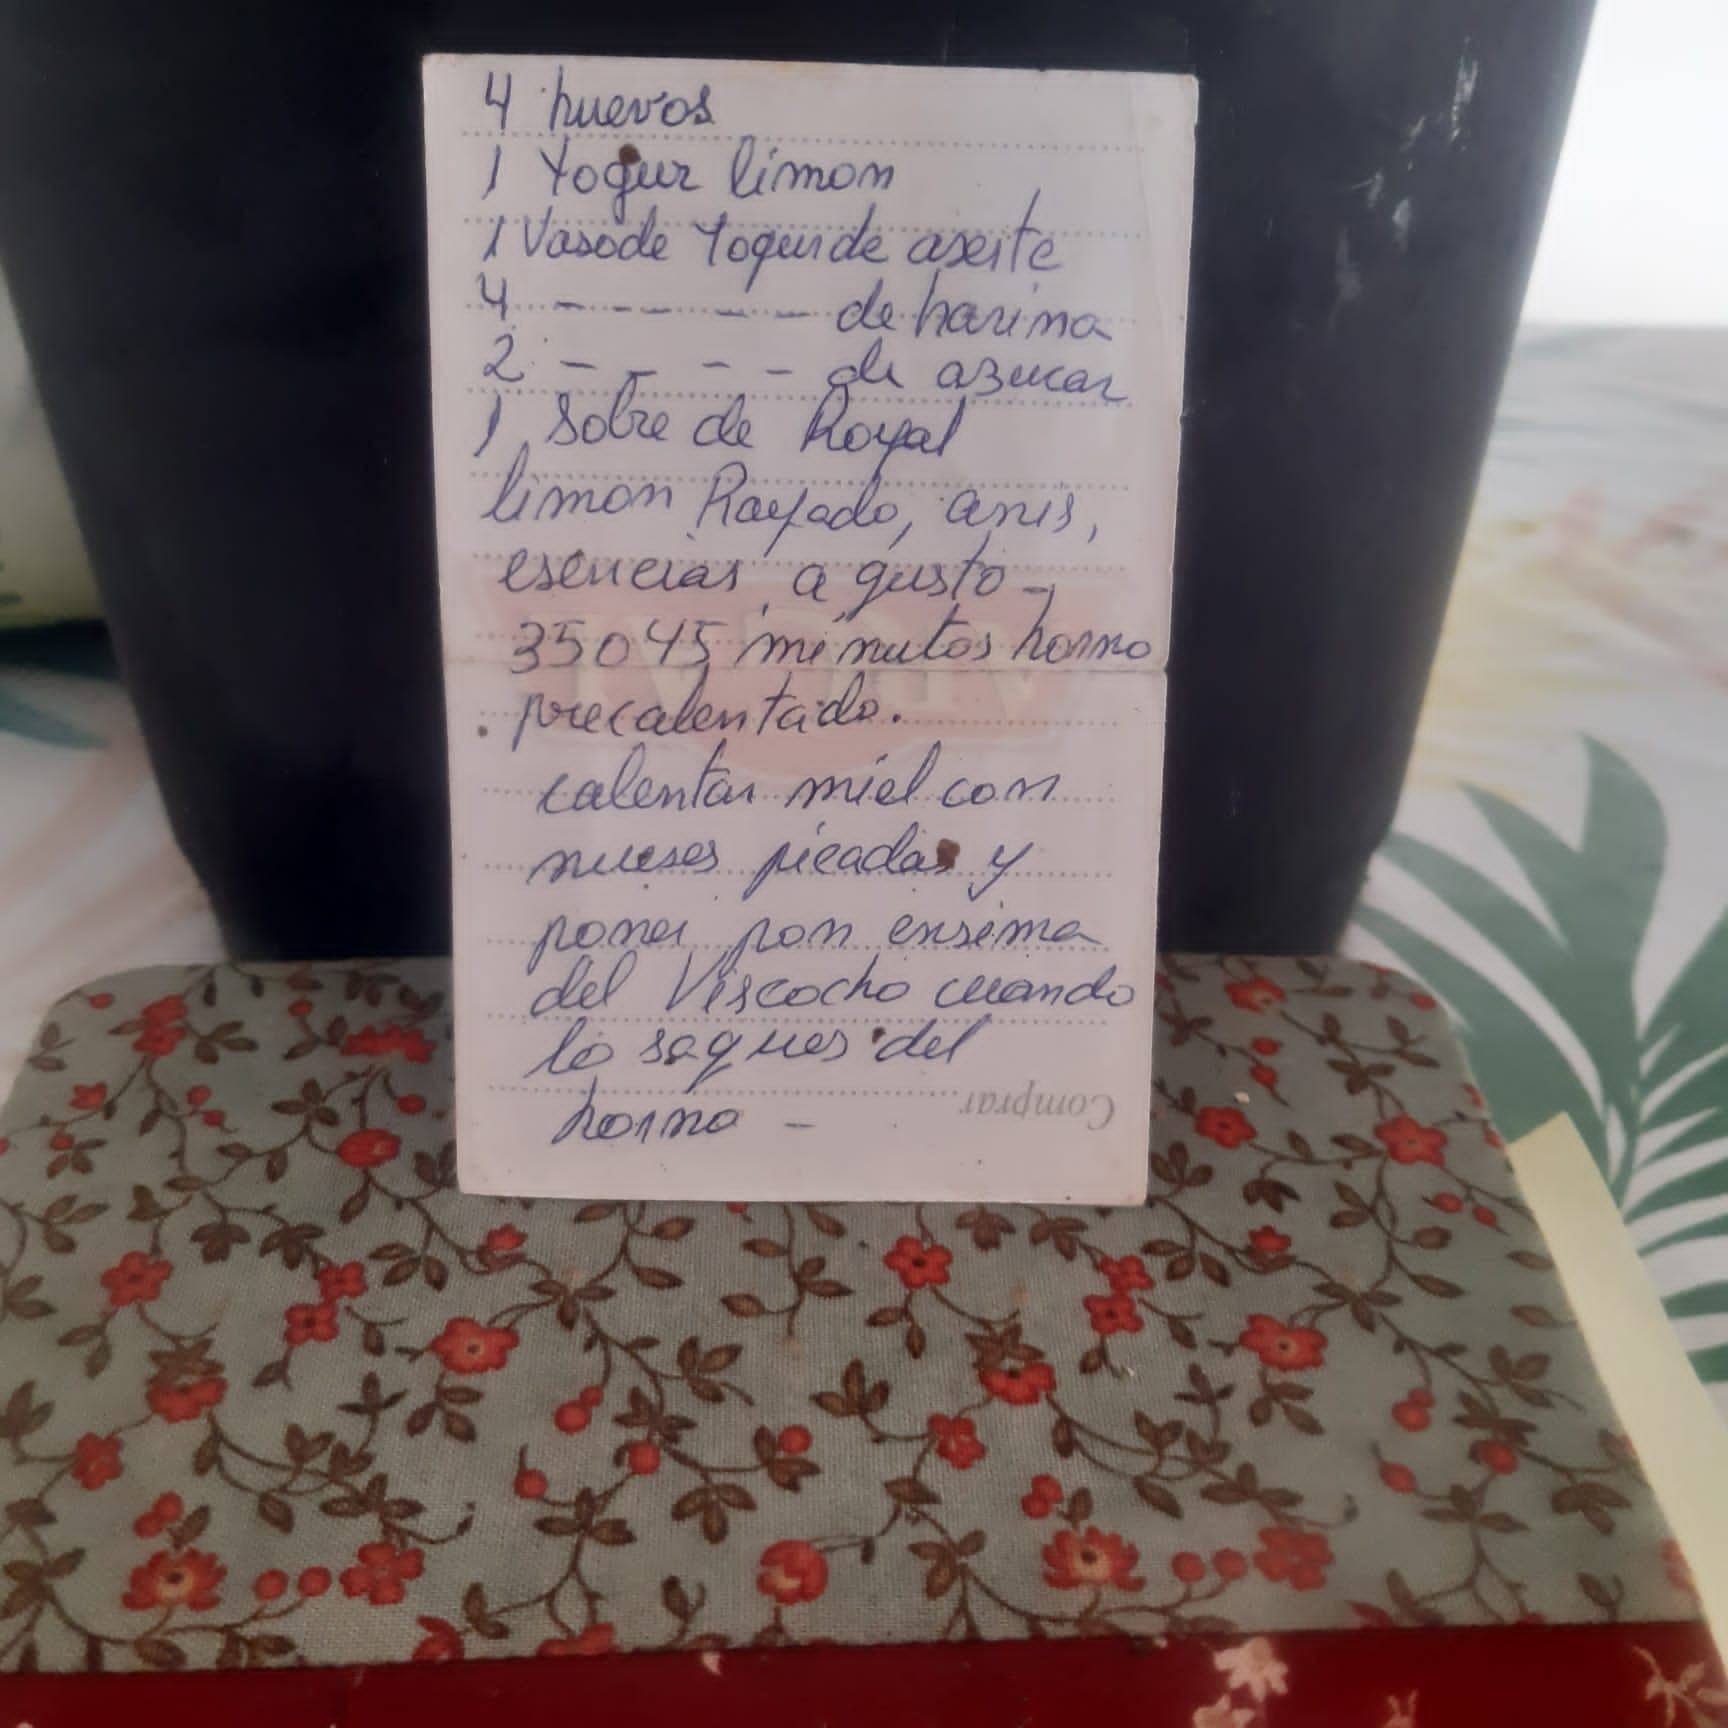 4 huevos
1 Yogur limon
1 Vaso de Yogur de aseite
4 - - - - - - de harina
2 - - - - de asucar
1 Sobre de Royal
limon Rayado, anis,
esencias a gusto -
35 o 45 minutos horno
precalentado.
calentar miel con
nueses picadas y
poner por ensima
del Viscocho cuando
lo saques del
horno -
Comprar